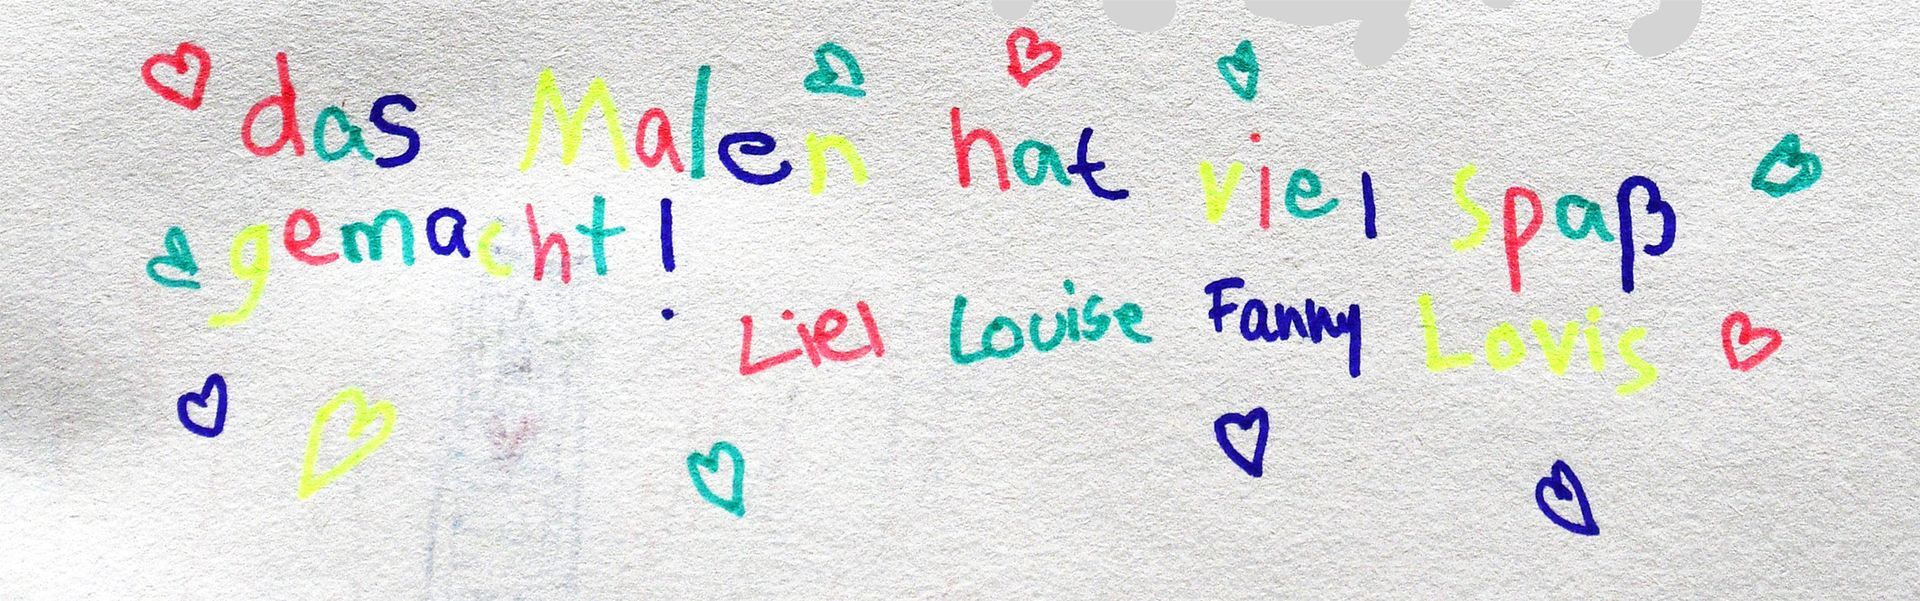 das Malen hat viel spaß
gemacht!
Liel Louise Fanny Lovis